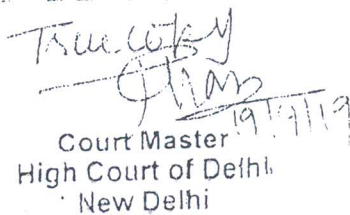 True copy
19/7/19
Court Master
High Court of Delhi
New Delhi